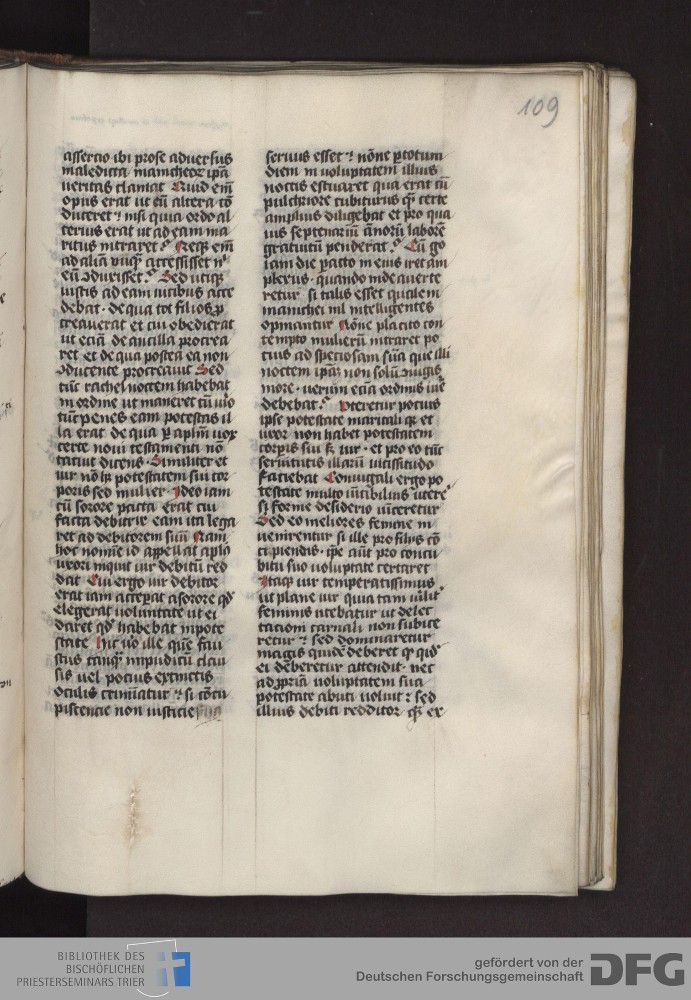 109
assercio ibi prose adversus
maledicta manicheor ipā
veritas clamat Quid em̄
opus erat ut eū altera cō
duceret nisi quia ordo al
terius erat ut ad eam ma
ritus intraret Neqȝ em̄
ad aliā accessisset nͥ
eū ɔduxisset Sed utiqȝ
iustis ad eam vicibus acce
debat de qua tot filios ꝓ
creaverat et cui obedierat
ut eciā de ancilla procrea
ret et de qua postea ea non
ɔducente procreavit Sed
tūc rachel noctem habebat
in ordine ut maneret cū viͦ
tūc penes eam potestas il
la erat de qua ꝑ aplm̄ vox
certe novi testamenti nō
tacuit dicens Similiter et
vir nō hꝫ potestatem sui cor
poris sed mulier Ideo iam
cū sorore pacta erat cui
facta debitͥx eam ita lega
ret ad debitorem suū Nam
hoc nomīe id appellat aplūs
uxori inquit vir debitū red
dat Cui ergo vir debitor
erat iam acceꝑat a sorore qd̄
elegerat voluntate ut ei
daret qd̄ habebat in pote
state hic vͦo ille quē fau
stus tanqȝ impudicū clau
sis vel pocius extinctis
oculis crimīatur si cōcu
piscencie non iusticie
servus esset nōne ꝑ totum
diem in voluptatem illius
noctis estuaret qua erat cū
pulchriore cubiturus qȝ certe
amplius diligebat et pro qua
vis septenariū amorū laborē
gratuitū penderat Cū ergo
iam die pacto in eius iret am
plexus quando inde averte
retur si talis esset qualem
manichei nil intelligentes
opinantur Nōne placito con
tempto mulierū intraret po
cius ad speciosam suā que illi
noctem ipā non solū ɔiugis
more verum eciā ordinis iure
debebat Uteretur pocius
ipse potestate maritali qȝ et
uxor non habet potestatem
corꝑis sui sꝫ vir et pro eo tūc
servitutis illarū vicissitudo
faciebat Coniugali ergo po
testate multo utere
si forme desiderio vinceretur
Sed eo meliores femine in
venirentur si ille pro filiis cō
cipiendis ipe aūt pro concu
bitu suo voluptate certaret
Itaqȝ vir temperatissimus
et plane vir quia tam virilit̄
feminis utebatur ut delec
tacioni carnali non subice
retur sed dominaretur
magis quidē deberet qͣ qͥd
ei dēberetur attendit nec
ad ꝓpriā voluptatem sua
potestate abuti voluit sed
illius debiti redditor qȝ ex
BIBLIOTHEK DES
BISCHÖFLICHEN
PRIESTERSEMINARS TRIER
gefördert von der
Deutschen Forschungsgemeinschaft
DFG